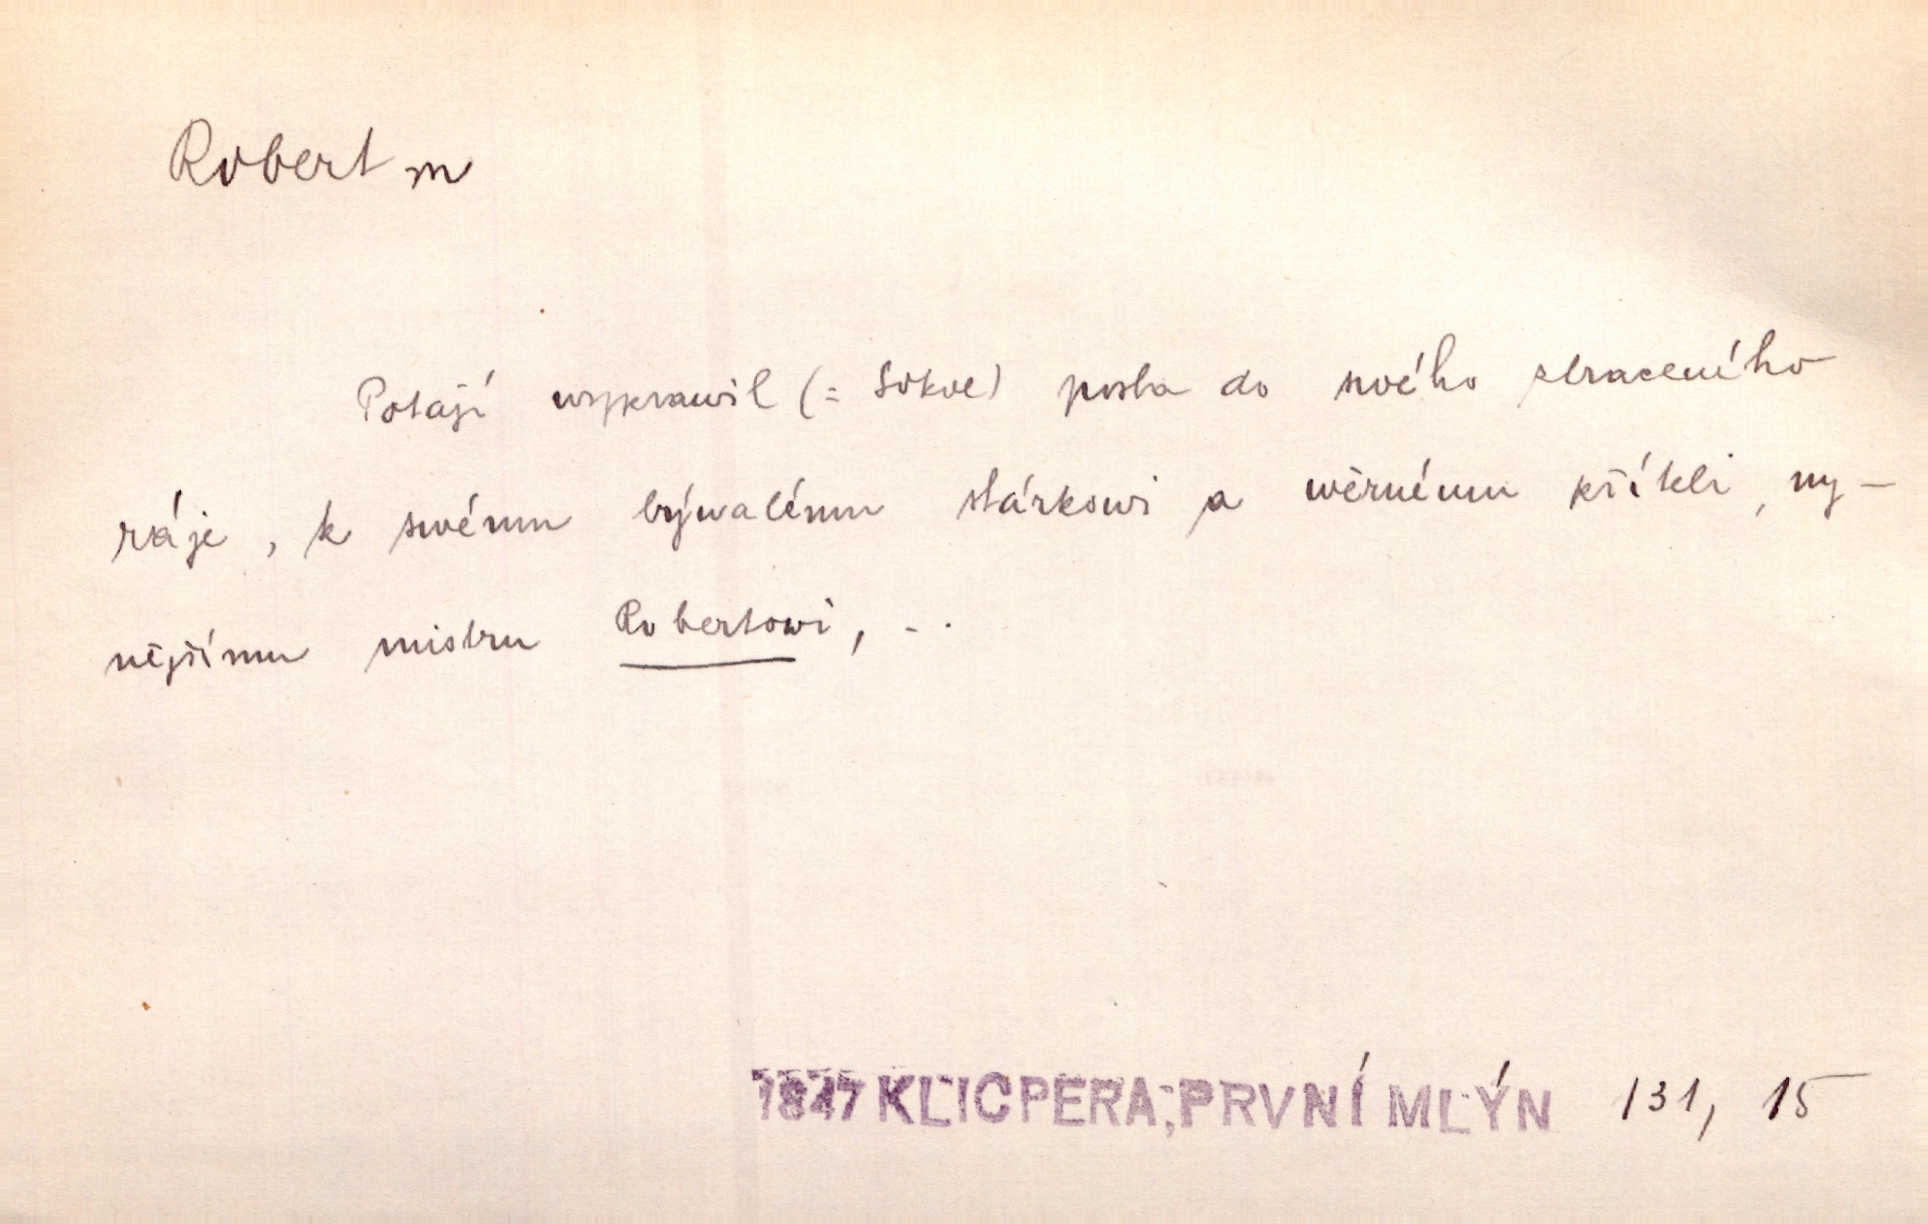 Robert m
Potají wyprawil (= Sokol) posla do swého ztraceného
ráje, k swému býwalému stárkowi a wěrnému příteli, ny-
nějšímu mistru Robertowi, ..
1847 KLICPERA, PRVNÍ MLÝN 131, 15